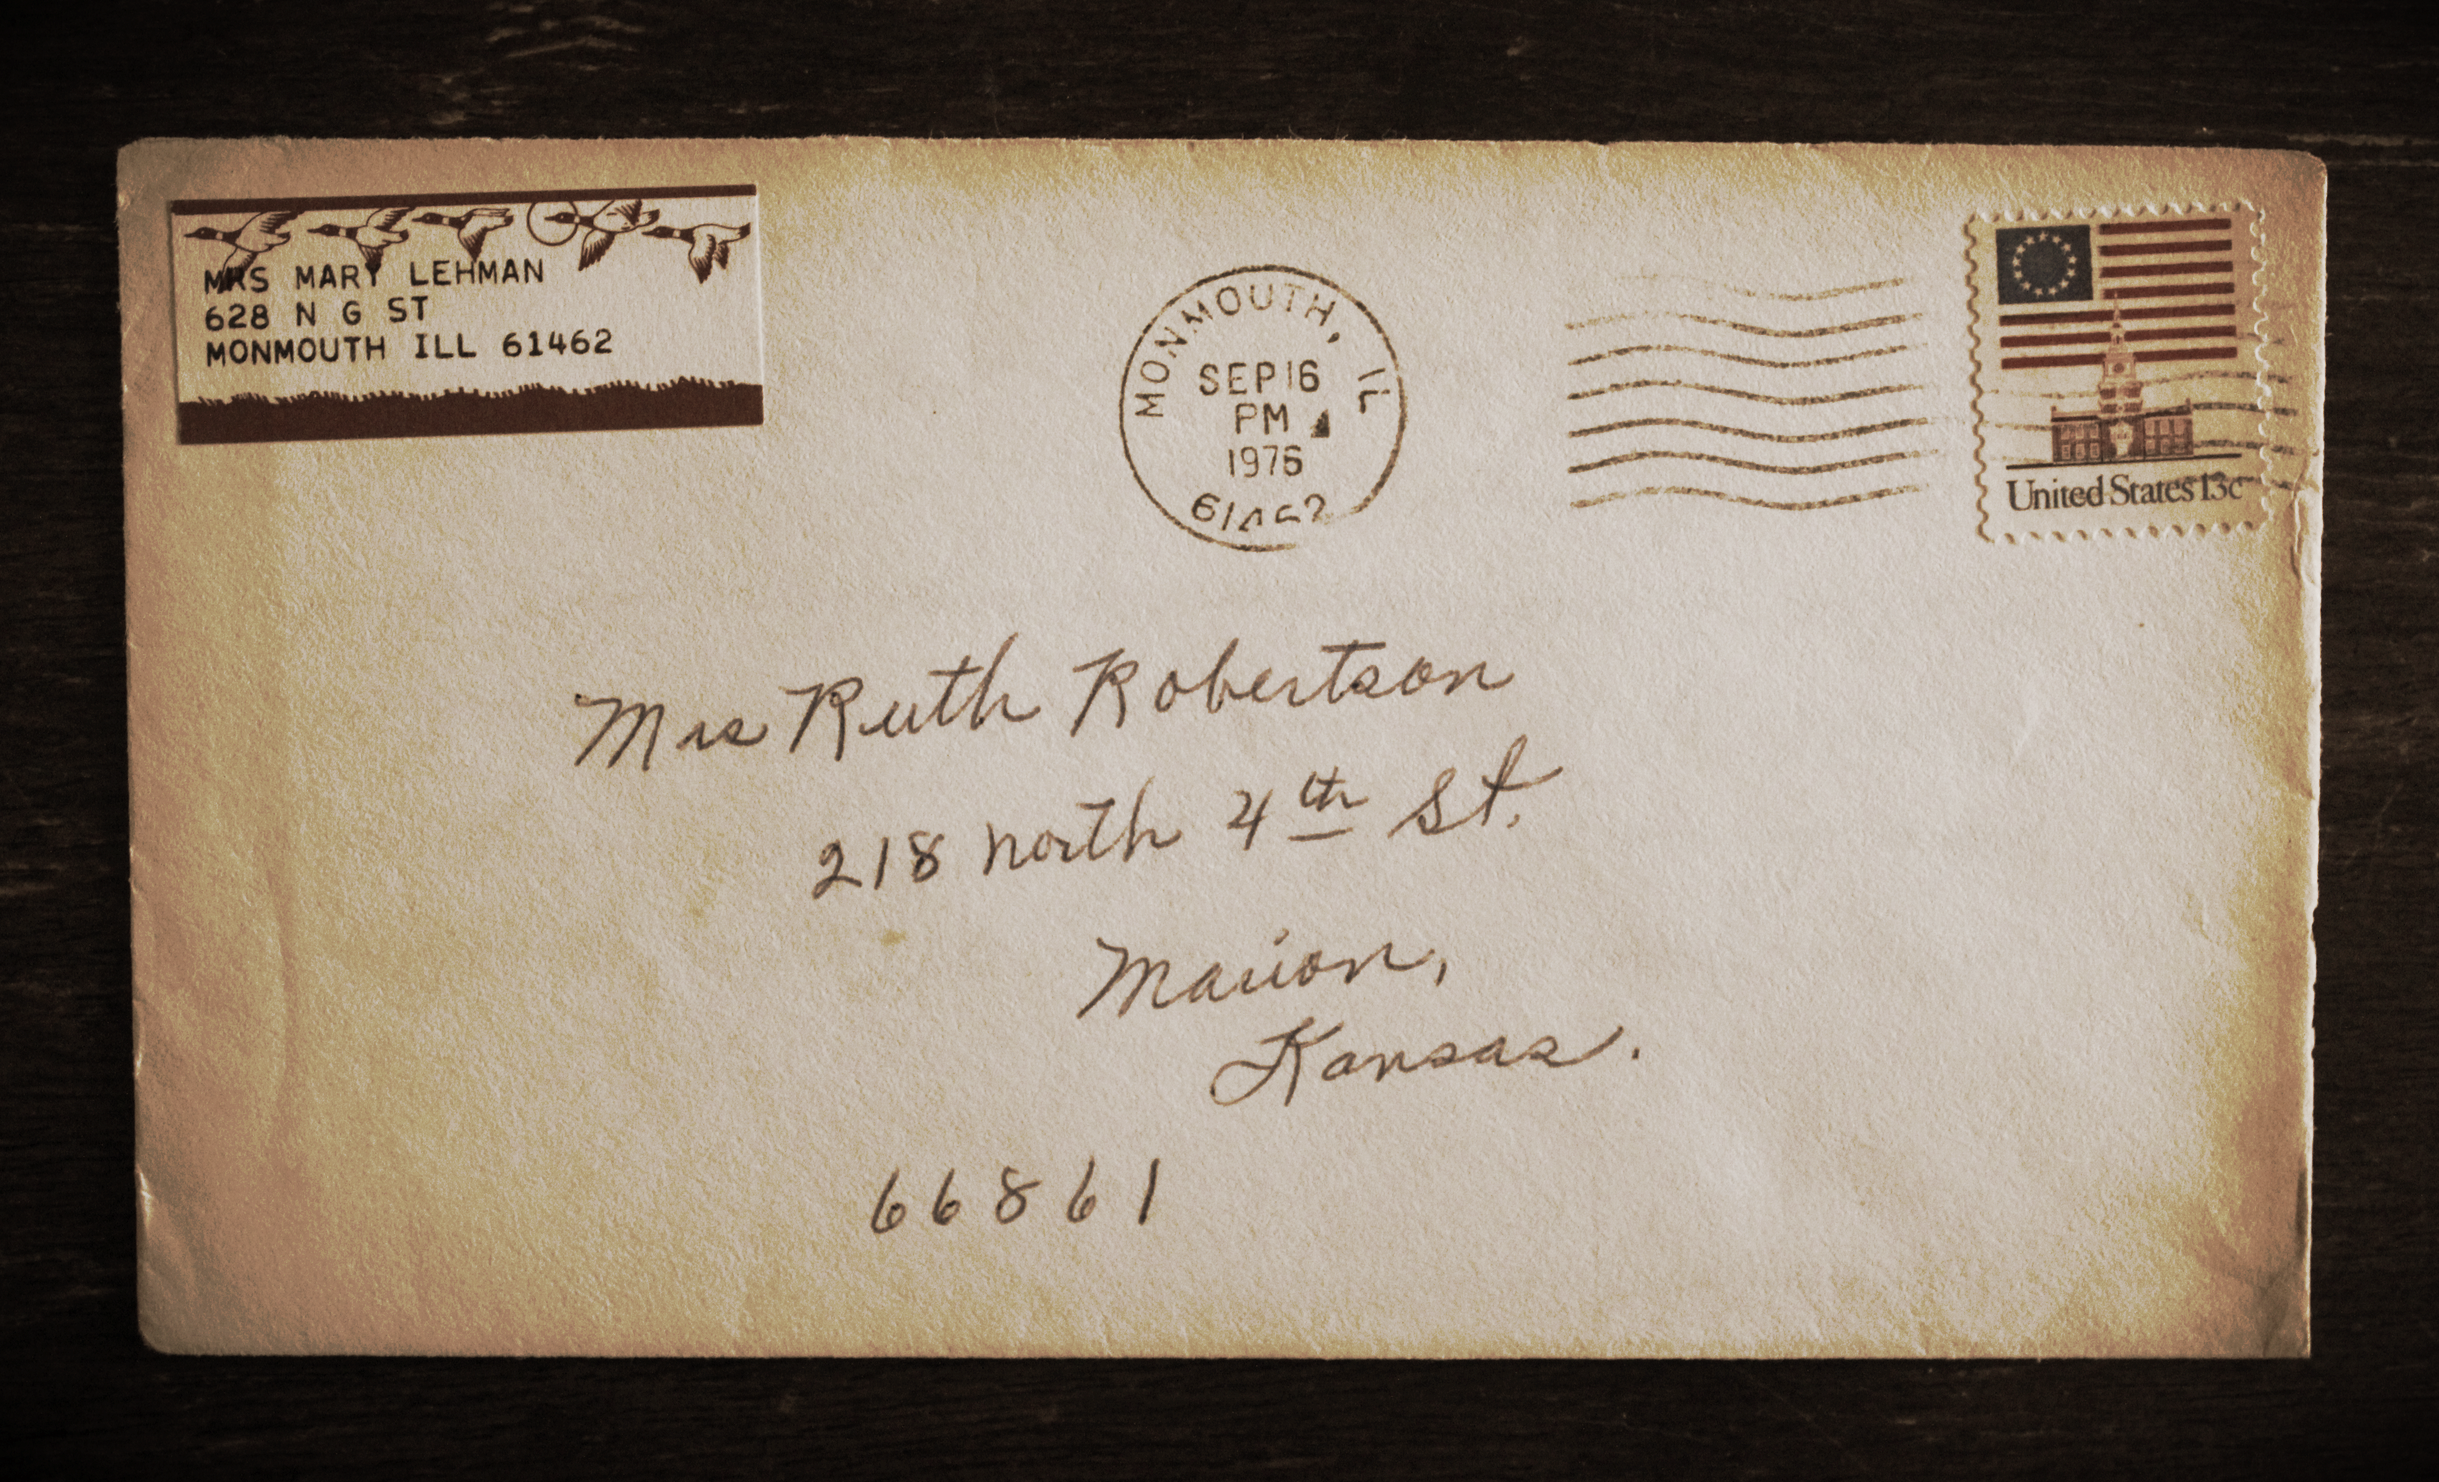 MRS MARY LEHMAN
628 N G ST
MONMOUTH ILL 61462
MONMOUTH, IL
SEP 16
PM
1976
61462
United States 13c
Mrs Ruth Robertson
218 North 4th St.
Marion,
Kansas.
66861